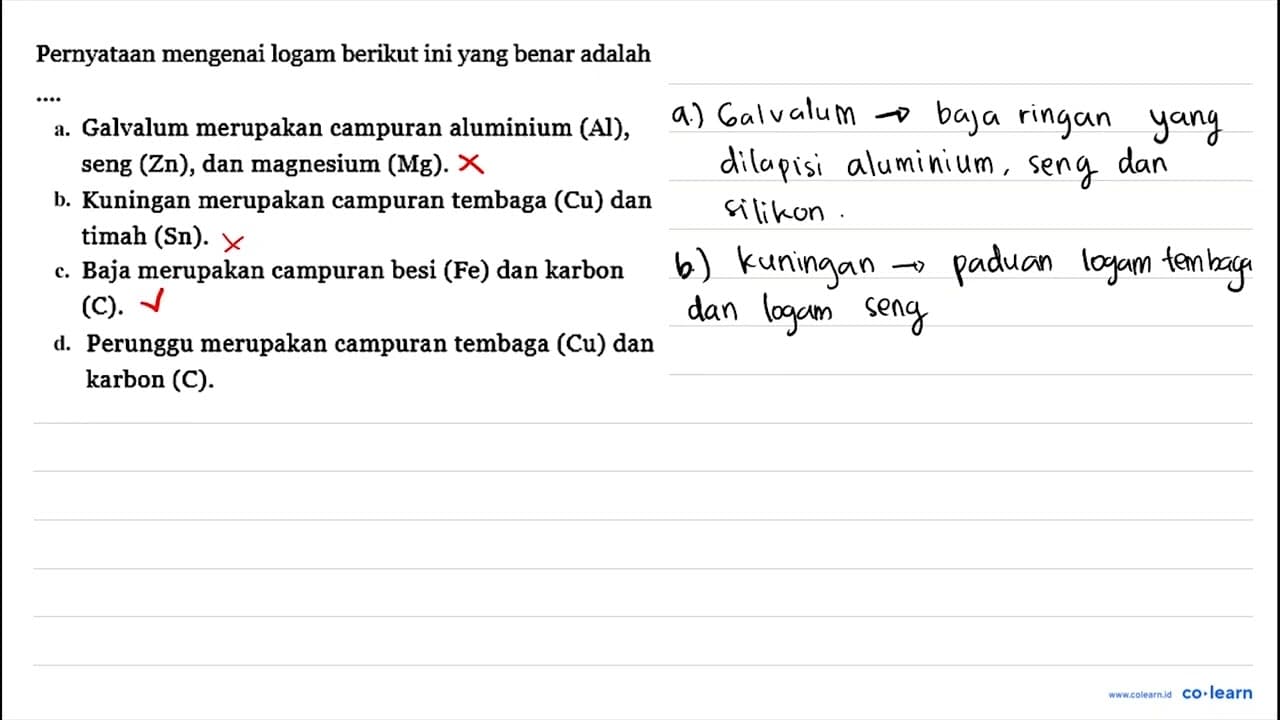 Pernyataan mengenai logam berikut ini yang benar adalah
....
a. Galvalum merupakan campuran aluminium (Al),
seng (Zn), dan magnesium (Mg). ✗
b. Kuningan merupakan campuran tembaga (Cu) dan
timah (Sn). ✗
c. Baja merupakan campuran besi (Fe) dan karbon
(C). ✓
d. Perunggu merupakan campuran tembaga (Cu) dan
karbon (C).
a.) Galvalum → baja ringan yang
dilapisi aluminium, seng dan
silikon.
b.) kuningan → paduan logam tembaga
dan logam seng
www.colearn.id co·learn